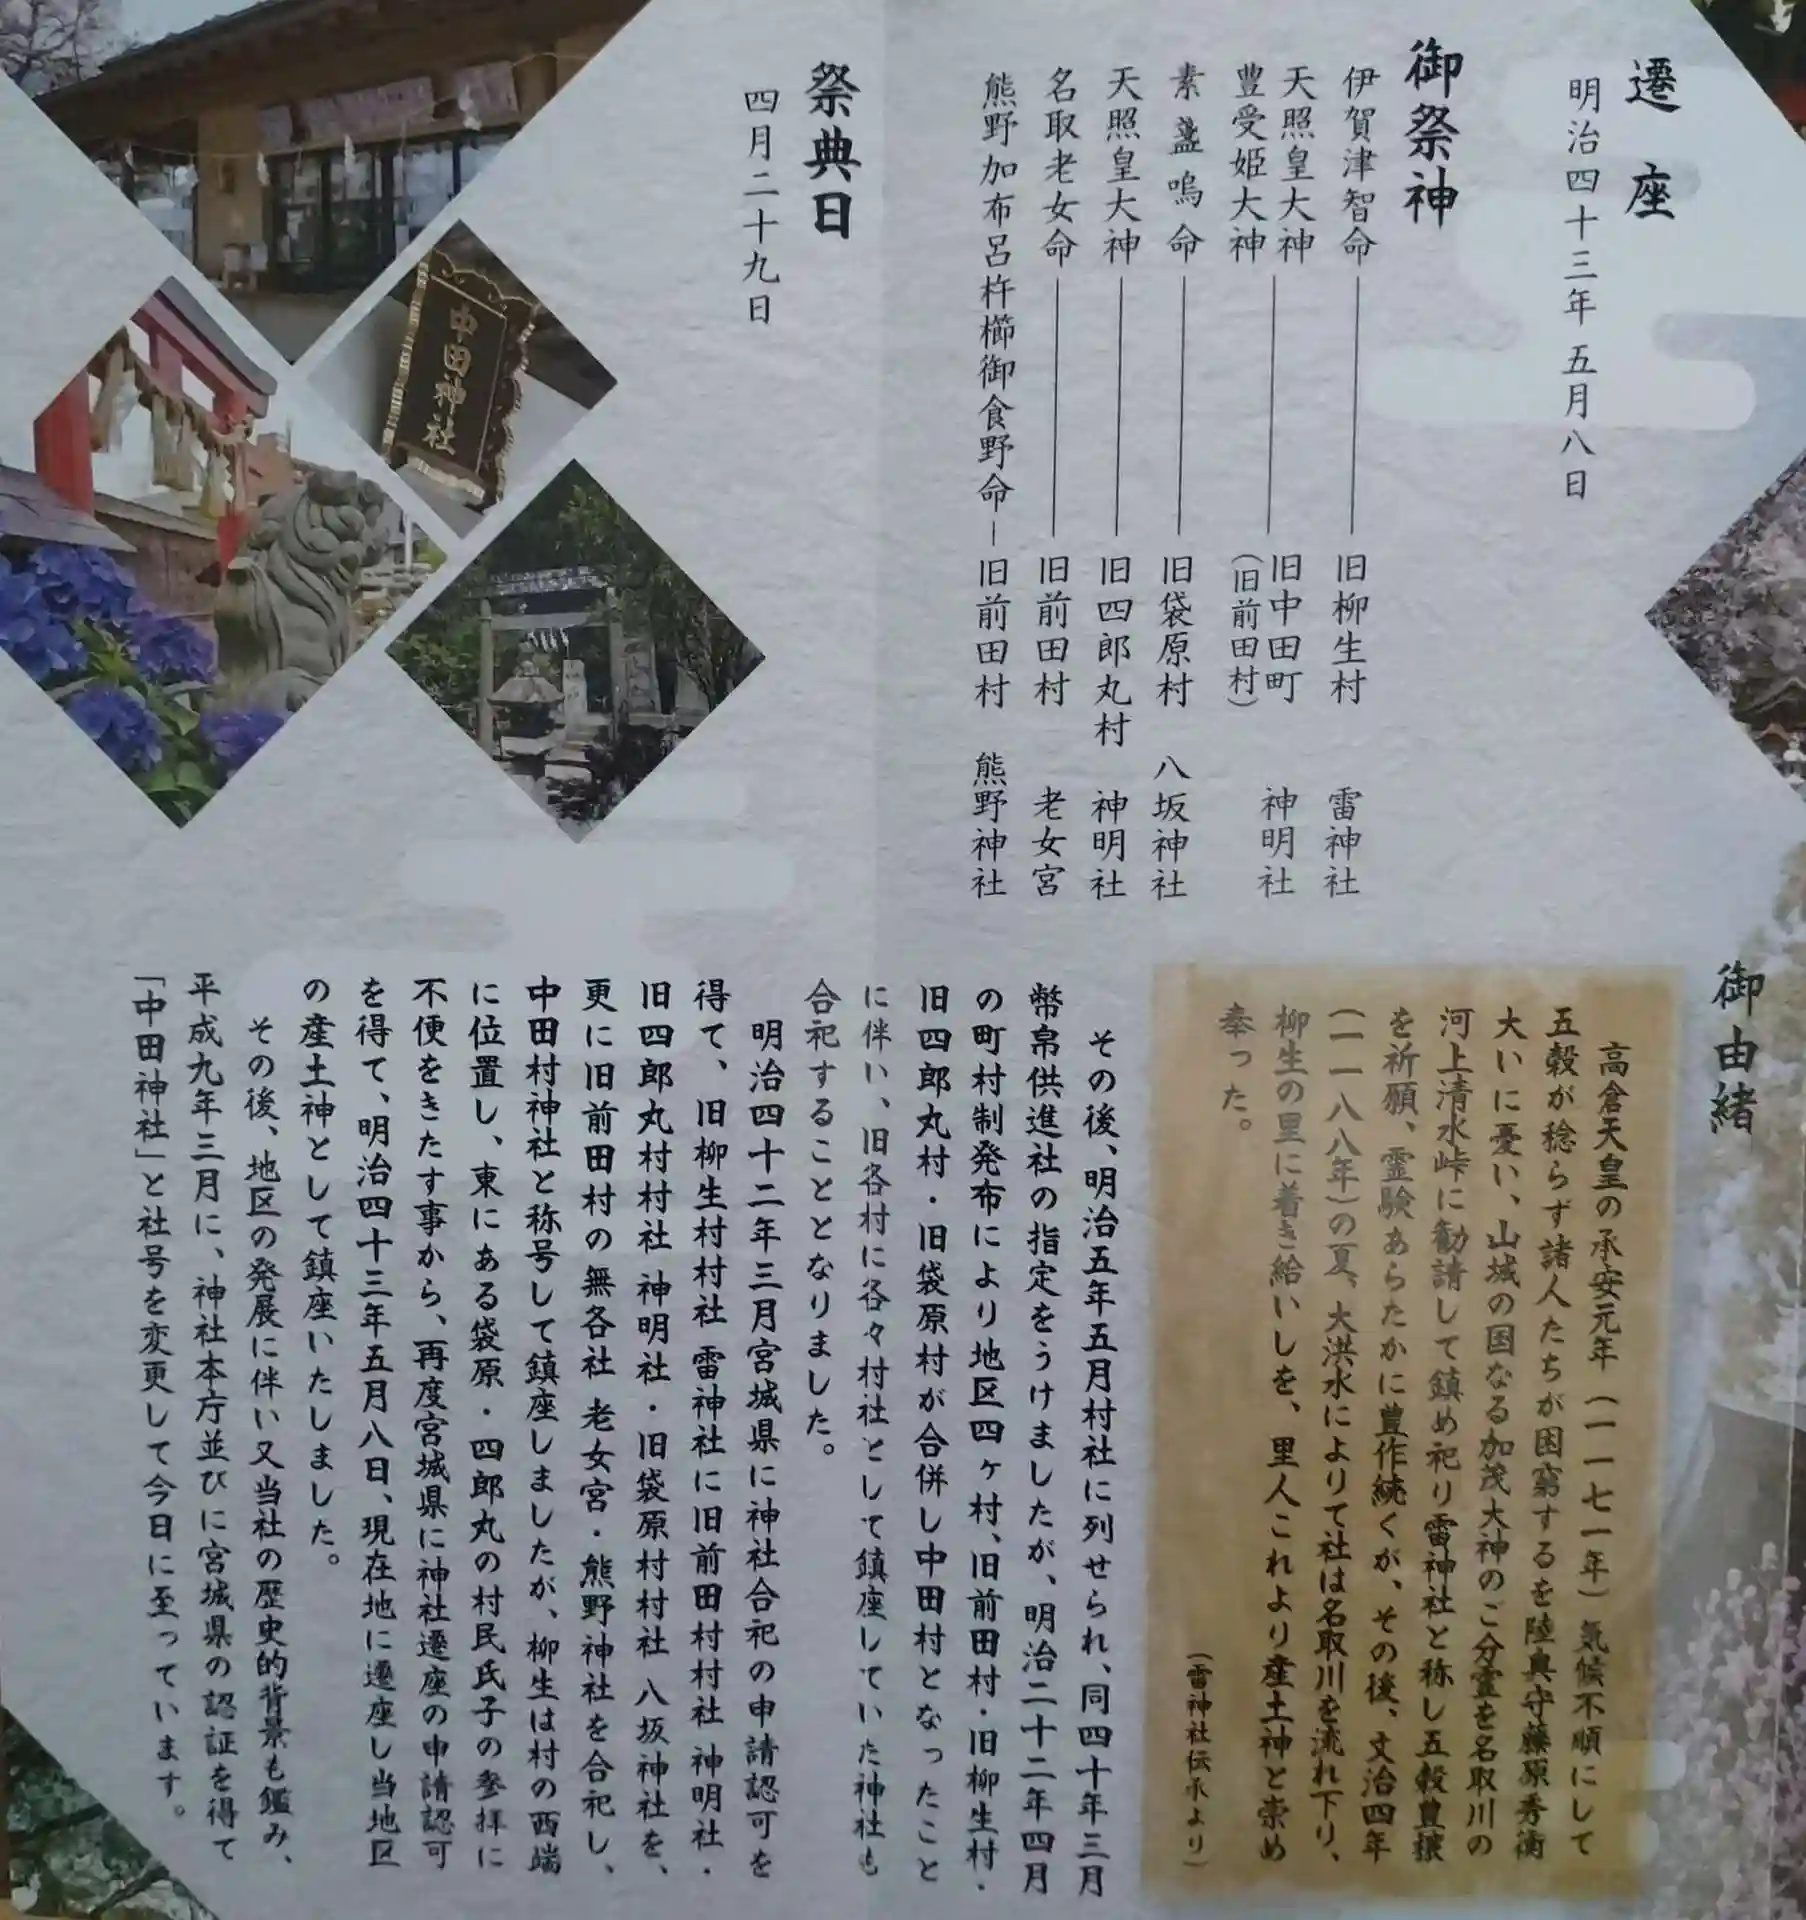 遷座
明治四十三年五月八日
御祭神
伊賀津智命―旧柳生村 雷神社
天照皇大神
豊受姫大神―旧中田町(旧前田村) 神明社
素盞嗚命―旧袋原村 八坂神社
天照皇大神―旧四郎丸村 神明社
名取老女命―旧前田村 老女宮
熊野加布呂杵櫛御食野命―旧前田村 熊野神社
祭典日
四月二十九日
中田神社
御由緒
高倉天皇の承安元年(一一七一年)気候不順にして
五穀が稔らず諸人たちが困窮するを陸奥守藤原秀衡
大いに憂い、山城の国なる加茂大神のご分霊を名取川の
河上清水峠に勧請して鎮め祀り雷神社と称し五穀豊穣
を祈願、霊験あらたかに豊作続くが、その後、文治四年
(一一八八年)の夏、大洪水によりて社は名取川を流れ下り、
柳生の里に着き給いしを、里人これより産土神と崇め
奉った。
(雷神社伝承より)
その後、明治五年五月村社に列せられ、同四十年三月
幣帛供進社の指定をうけましたが、明治二十二年四月
の町村制発布により地区四ヶ村、旧前田村・旧柳生村・
旧四郎丸村・旧袋原村が合併し中田村となったこと
に伴い、旧各村に各々村社として鎮座していた神社も
合祀することとなりました。
明治四十二年三月宮城県に神社合祀の申請認可を
得て、旧柳生村村社 雷神社に旧前田村村社 神明社・
旧四郎丸村村社 神明社・旧袋原村村社 八坂神社を、
更に旧前田村の無各社 老女宮・熊野神社を合祀し、
中田村神社と称号して鎮座しましたが、柳生は村の西端
に位置し、東にある袋原・四郎丸の村民氏子の参拝に
不便をきたす事から、再度宮城県に神社遷座の申請認可
を得て、明治四十三年五月八日、現在地に遷座し当地区
の産土神として鎮座いたしました。
その後、地区の発展に伴い又当社の歴史的背景も鑑み、
平成九年三月に、神社本庁並びに宮城県の認証を得て
「中田神社」と社号を変更して今日に至っています。